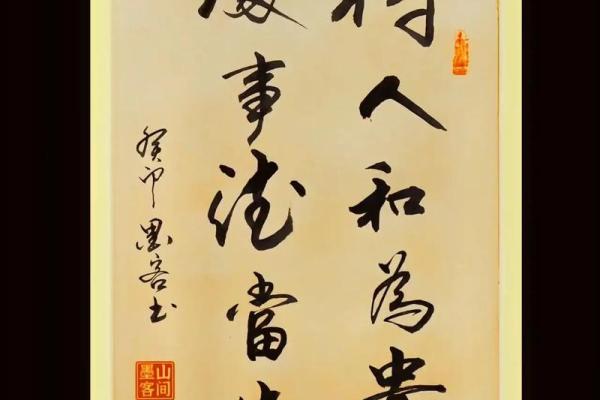 待人和為貴
處事德當
癸卯墨客书
山间墨客